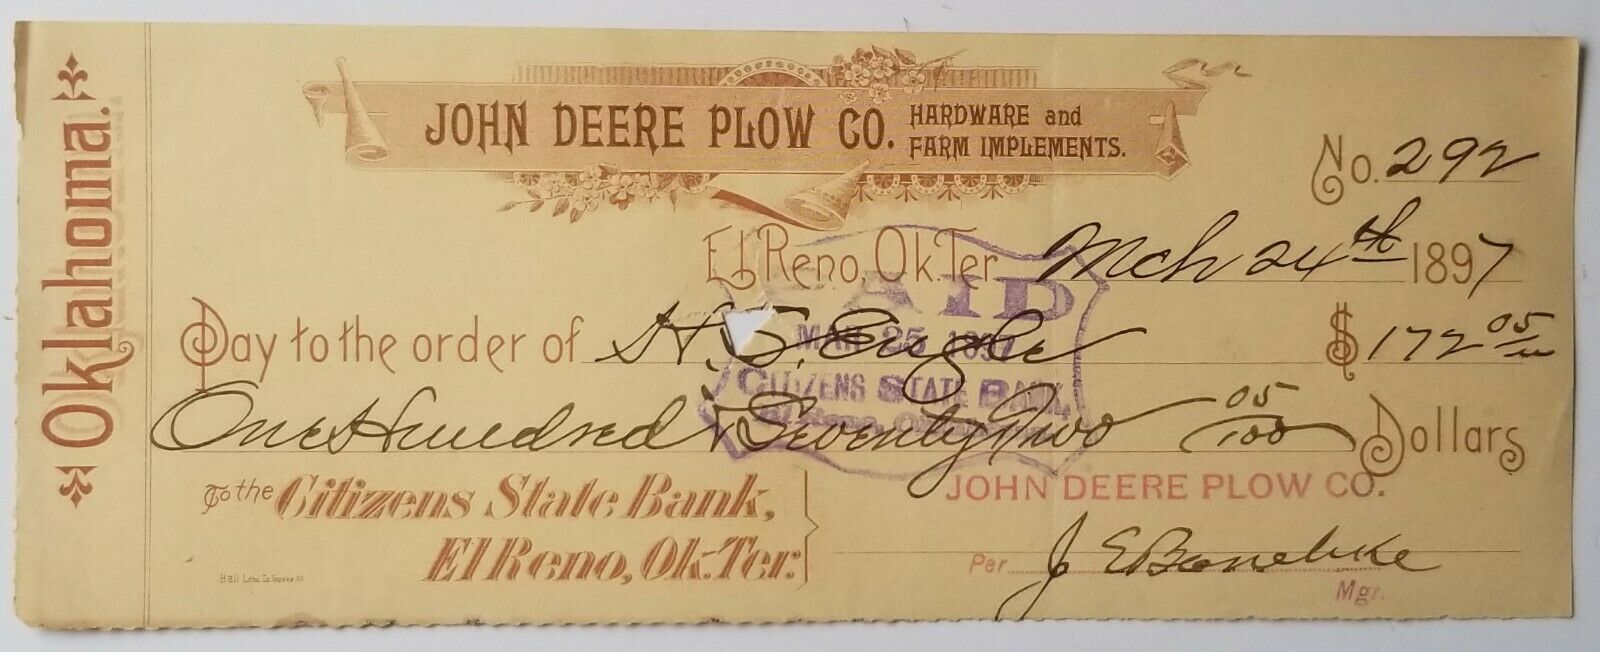 Oklahoma.
JOHN DEERE PLOW CO. HARDWARE and FARM IMPLEMENTS.
No. 292
El Reno, Ok. Ter. Mch 24th 1897
Pay to the order of H. S. $172 05/
One Hundred & Seventy Two 05/100 Dollars
PAID
MAR 25 1897
CITIZENS STATE BANK,
El Reno,
To the Citizens State Bank,
El Reno, Ok. Ter.
JOHN DEERE PLOW CO.
Per J E
Mgr.
Hall Litho. Co. Topeka